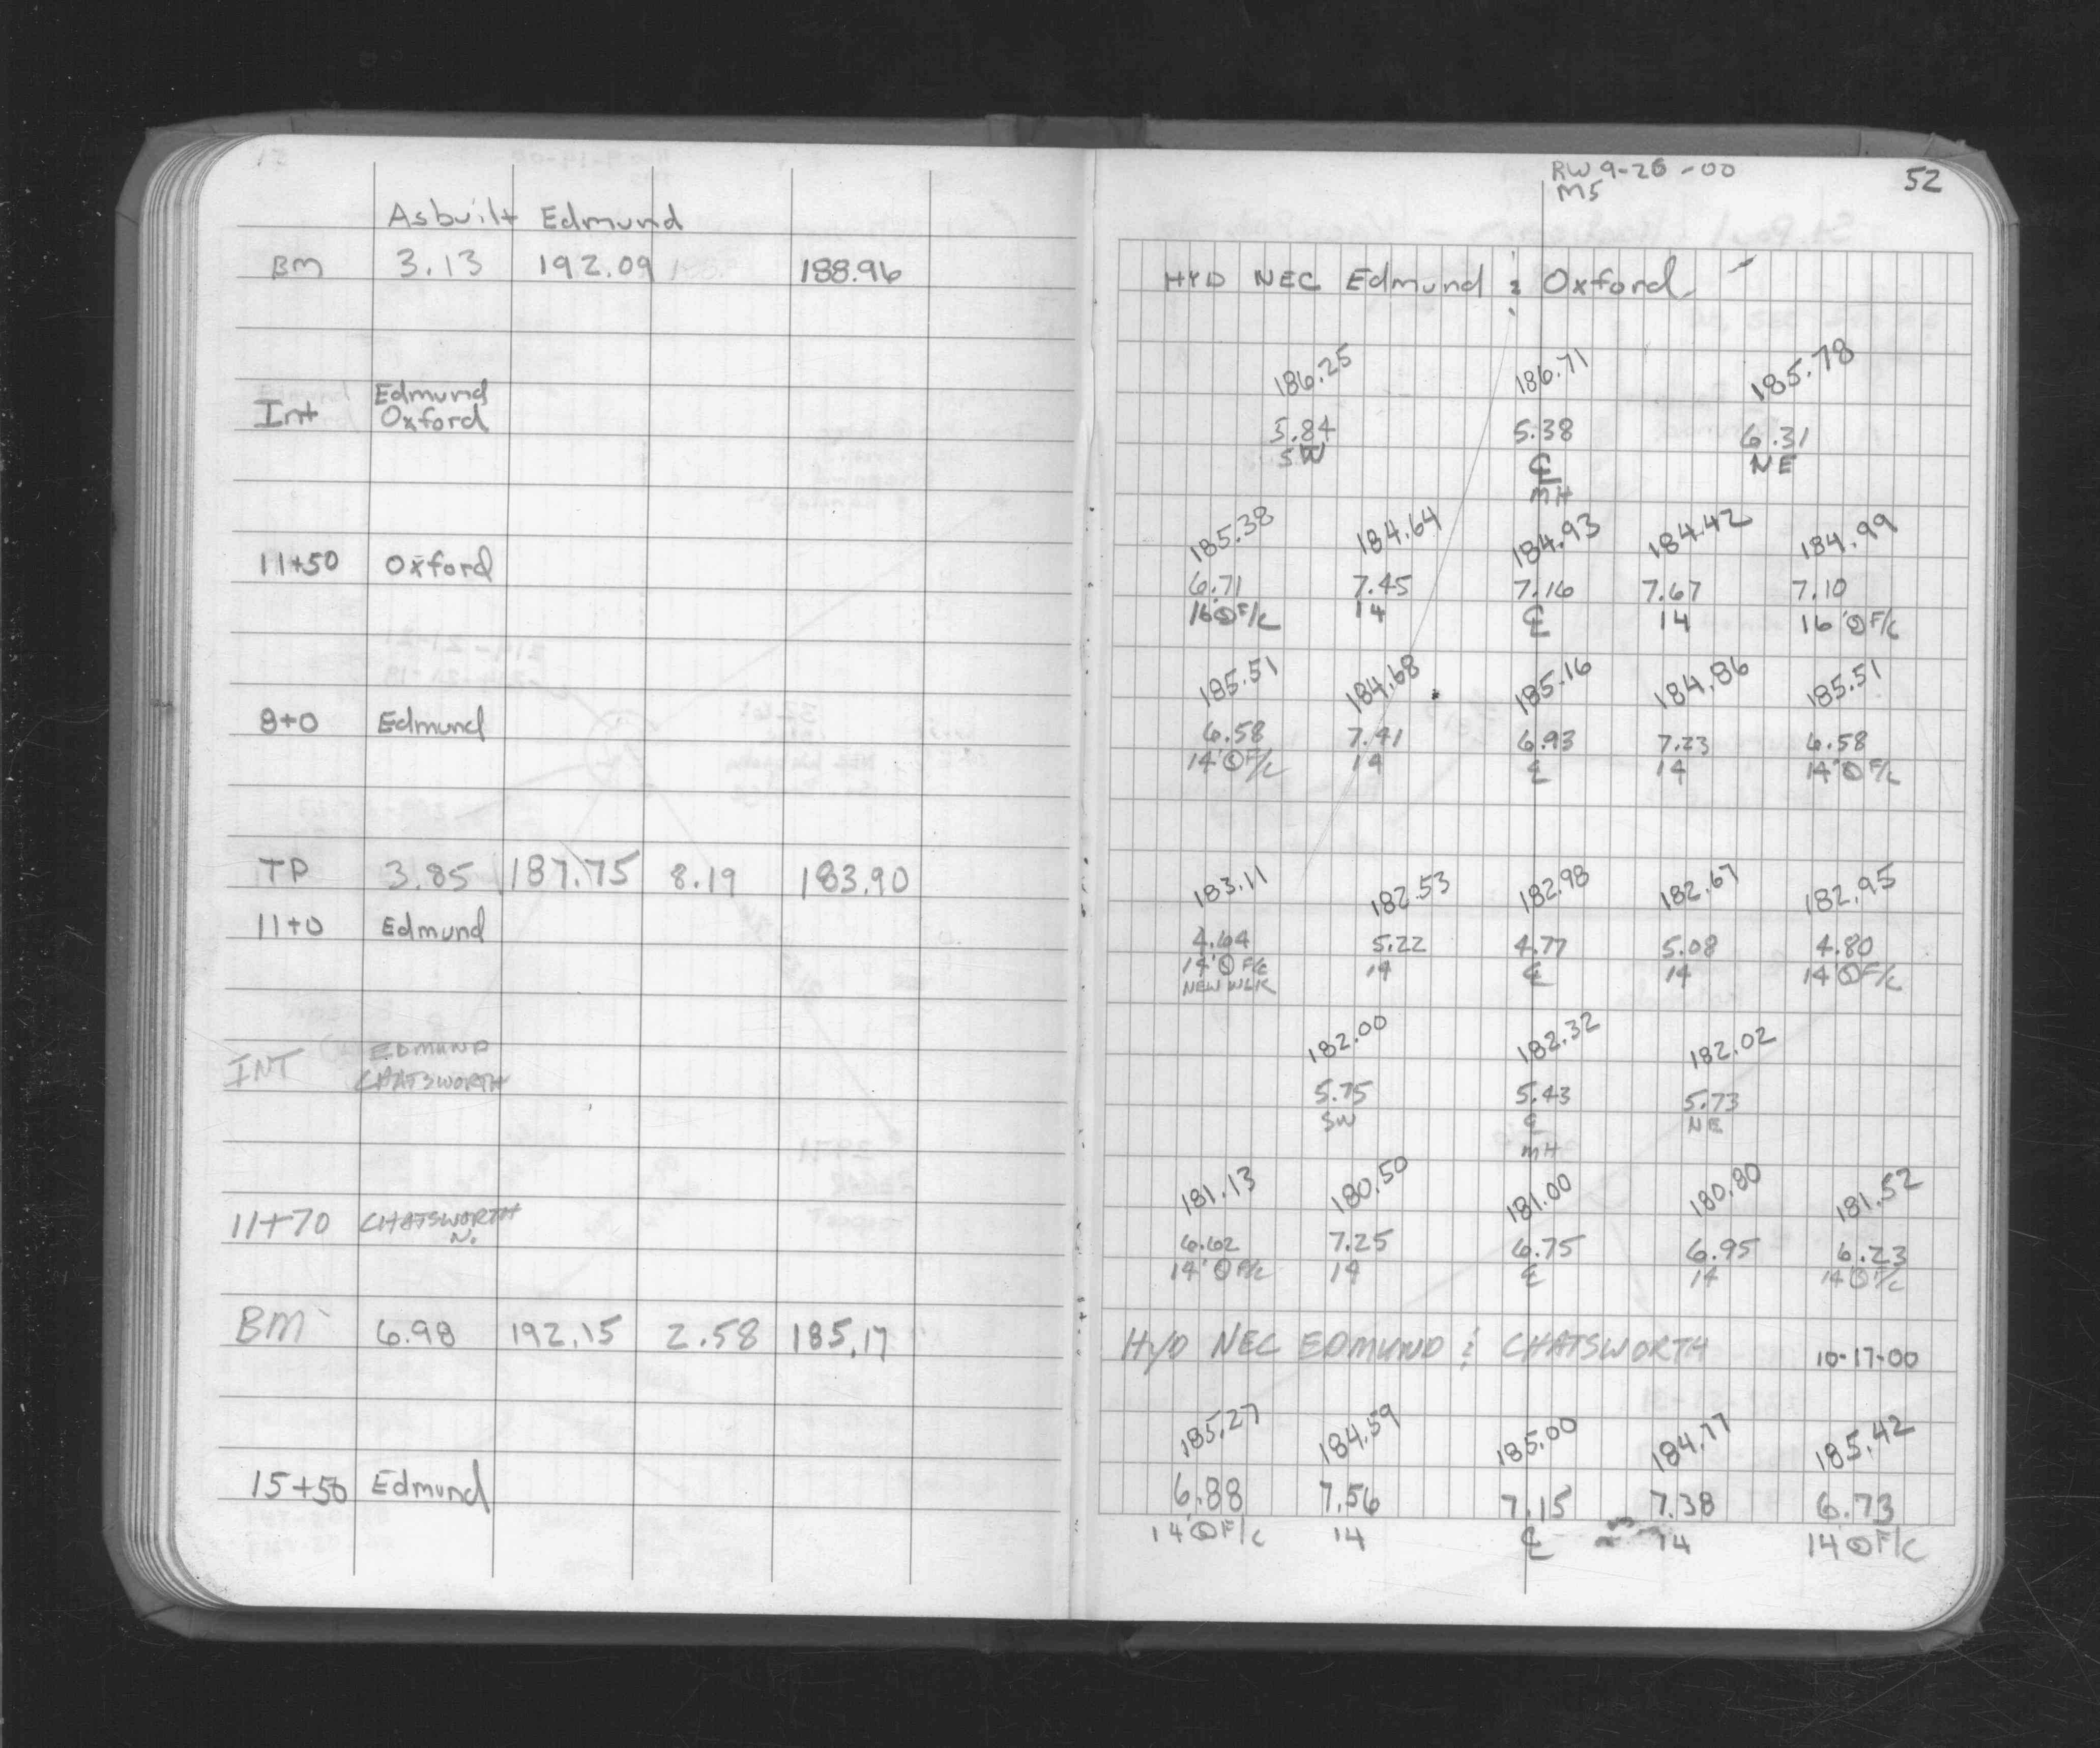 Asbuilt Edmund
BM 3.13 192.09 188.96
Int Edmund
Oxford
11+50 Oxford
8+0 Edmund
TP 3.85 187.75 8.19 183.90
11+0 Edmund
INT EDMUND
CHATSWORTH
11+70 CHATSWORTH
N.
BM 6.98 192.15 2.58 185.17
15+50 Edmund
RW 9-26-00
MS
52
HYD NEC Edmund & Oxford
186.25 186.71 185.78
5.84 5.38 6.31
SW ℄ NE
MH
185.38 184.64 184.93 184.42 184.99
6.71 7.45 7.16 7.67 7.10
16' F/C 14 ℄ 14 16' F/C
185.51 184.68 185.16 184.86 185.51
6.58 7.41 6.93 7.23 6.58
14' F/C 14 ℄ 14 14' F/C
183.11 182.53 182.98 182.67 182.95
4.64 5.22 4.77 5.08 4.80
14' F/C 14 ℄ 14 14' F/C
NEW WLK
182.00 182.32 182.02
5.75 5.43 5.73
SW ℄ NE
MH
181.13 180.50 181.00 180.80 181.52
6.62 7.25 6.75 6.95 6.23
14' F/C 14 ℄ 14 14' F/C
HYD NEC EDMUND & CHATSWORTH 10-17-00
185.27 184.59 185.00 184.77 185.42
6.88 7.56 7.15 7.38 6.73
14' F/C 14 ℄ 14 14' F/C